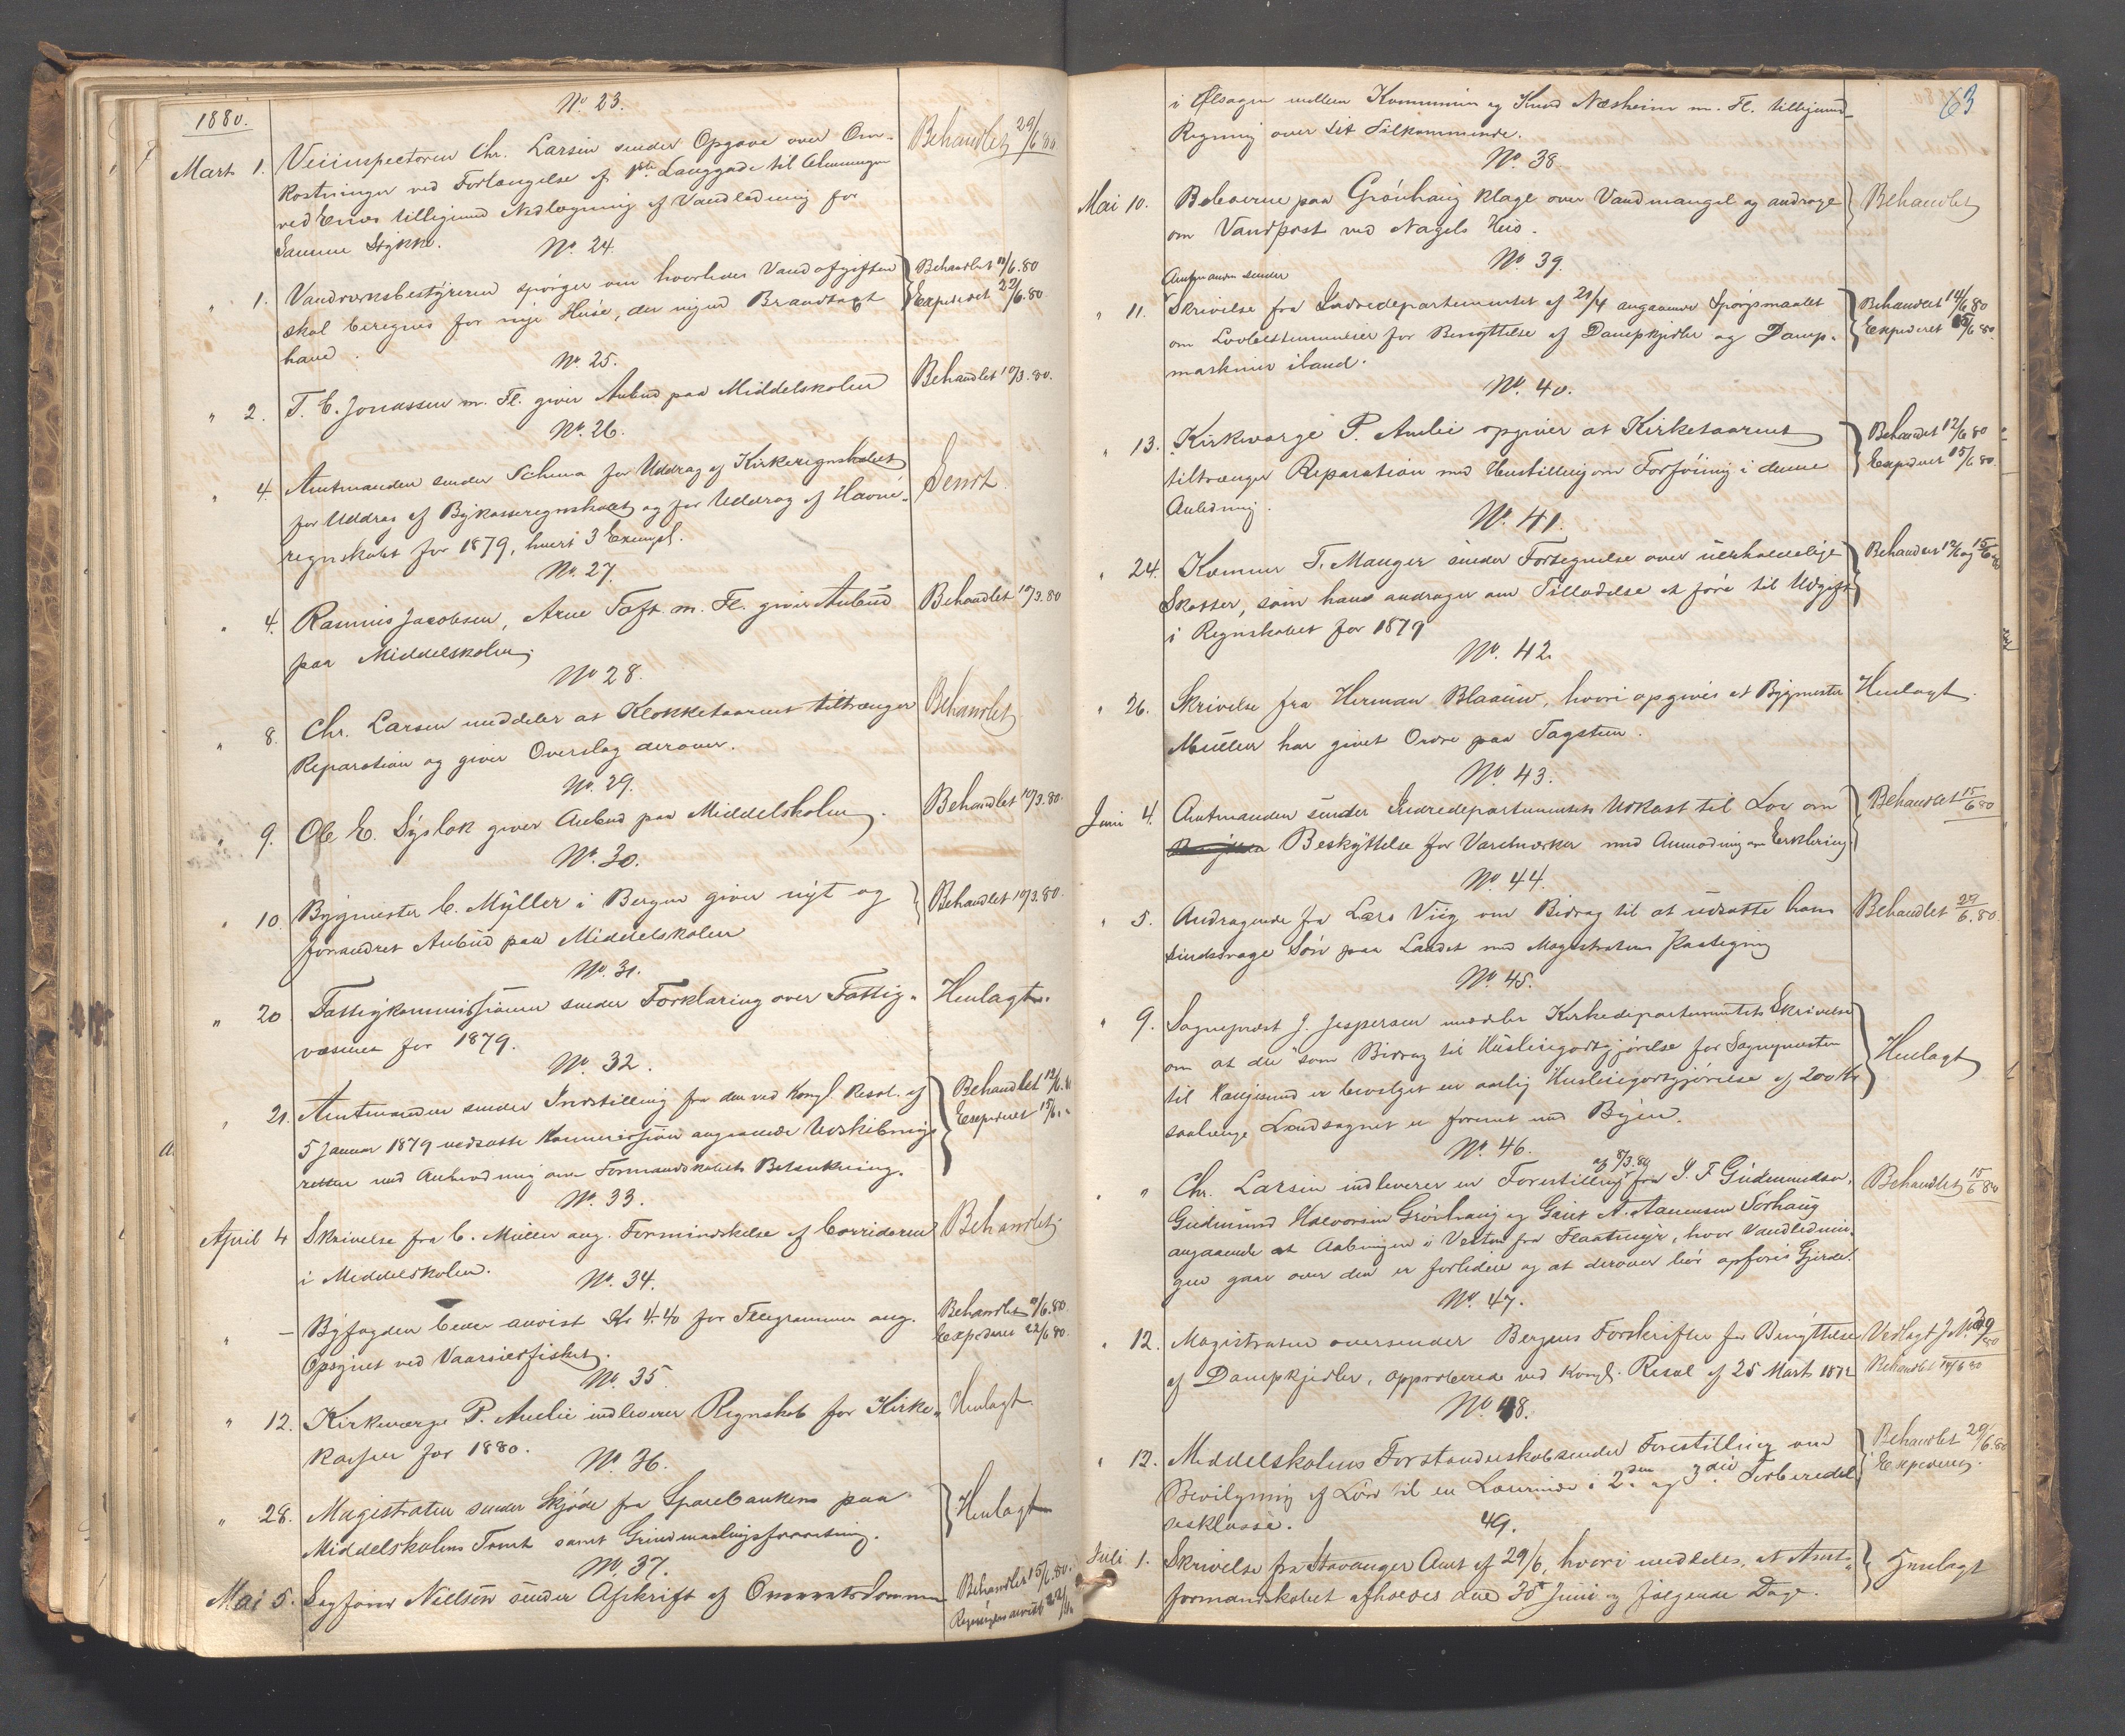 1880.
No. 23.
Mart 1. Veiinspectoren Chr. Larsen sender Opgave over Om-
kostninger ved Forlængelse af 1ste Langgade til Almuingen
ved Enes tilligemed Nedlægning af Vandledning for
Samme Stykke.
Behandlet 29/6 80
No. 24.
" 1. Vandværksbestyreren spørger om hvorledes Vandafgiften
skal beregnes for nye Huse, der nyend Brandtaxt
havd.
Behandlet 11/6.80
Expederet 22/6.80
No. 25.
" 2. T. E. Jonassen m. Fl. giver Anbud paa Middelskolen
Behandlet 10/3.80.
No. 26.
" 4. Amtmanden sender Schema for Uddrag af Kirkeregnskabet
for Uddrag af Bykasseregnskabet og for Uddrag af Havne-
regnskabet for 1879, hvert 3 Exempl.
Sendt
No. 27.
" 4. Rasmus Jacobsen, Arne Toft m. Fl. giver Anbud
paa Middelskolen.
Behandlet 10/3.80
No 28.
" 8. Chr. Larsen meddeler at Klokketaarnet tiltrænger
Reparation og giver Overslag derover.
Behandlet
No. 29.
" 9. Ole E. Syslak giver Anbud paa Middelskolen.
Behandlet 10/3.80.
No. 30.
" 10. Bygmester C. Müller i Bergen giver nyt og
forandret Anbud paa Middelskolen
Behandlet 10/3.80.
No. 31.
" 20. Fattigkommissionen sender Forklaring over Fattig-
væsenet for 1879.
Henlagt.
No. 32.
" 21. Amtmanden sender Indstilling fra den ved Kongl. Resol. af
5 Januar 1879 nedsatte Kommission angaaende Udskibnings
retten med Anmodning om Formandskabets Betænkning.
Behandlet 12/6.
Expederet 15/6.
No. 33.
April 4 Skrivelse fra C. Müller ang. Formindskelse af Corridoren
i Middelskolen.
Behandlet
No. 34.
" - Byfogden beder anvist Kr 4.40 for Telegrammer ang.
Opsynet ved Vaarsildfisket.
Behandlet 11/6.80.
Expederet 22/6 80.
No. 35
" 12. Kirkeværge P. Amlie indleverer Regnskab for Kirke-
kassen for 1880.
Henlagt.
No. 36.
" 28. Magistraten sender Skjøde fra Sparebanken paa
Middelskolens Tomt samt Grundmaalingsforretning.
Henlagt
No. 37.
Mai 5. Sagfører Nielsen sender Afskrift af Overretsdommen
Behandlet 15/6.80.
63
i Ølsagen mellem Kommunen og Knud Næsheim m. Fl. tilligemed
Regning over sit Tilkommende.
No. 38
Mai 10. Beboerne paa Grønhaug klage over Vandmangel og andrage
om Vandpost ved Nagels Hus.
Behandlet
No. 39.
Amtmanden sender
" 11. Skrivelse fra Indredepartementet af 21/4 angaaende Spørgsmaalet
om Lovbestemmelser for Benyttelse af Dampkjedler og Damp-
maskiner iland.
Behandlet 14/6 80
Expederet 15/6 80.
No. 40.
" 13. Kirkeværge P. Amlie opgiver at Kirketaarnet
tiltrænger Reparation med Henstilling om Forføining i denne
Anledning.
Behandlet 12/6 80
Expederet 15/6 80.
No. 41.
" 24. Kæmner T. Manger sender Fortegnelse over uerholdelige
Skatter, som han andrager om Tilladelse at føre til Udgift
i Regnskabet for 1879
Behandlet 12/6 og 15/6
No. 42.
" 26. Skrivelse fra Herman Blaauw, hvori opgives at Bygmester
Müller har givet Ordre paa Tagsten.
Henlagt.
No. 43.
Juni 4. Amtmanden sender Indredepartementets Udkast til Lov om
Beskyttelse for Varemærker med Anmodning om Erklæring.
Behandlet 15/6 80
No. 44.
" 5. Andragende fra Lars Viig om Bidrag til at udsætte hans
sindssvage Søn paa Landet med Magistratens Paategning
Behandlet 29/6.80.
No. 45.
" 9. Sogneprest J. Jespersen meddeler Kirkedepartementets Skrivelse
om at der som Bidrag til Husleiegodtgjørelse for Sognepresten
til Haugesund er bevilget en aarlig Husleiegodtgjørelse af 200 Kr
saalænge Landsognet er forenet med Byen.
Henlagt
No. 46.
" " Chr. Larsen indleverer en Forestilling af 8/3.80 fra S. T. Gudmundsen,
Gudmund Halvorsen Grønhaug og Gaut A. Aanensen Sørhaug
angaaende at Aabningen i Vesten fra Flaatmyr, hvor Vandlednin-
gen gaar over den er forliden og at derover bør opføres Gjerde.
Behandlet 15/6 80
No. 47.
" 12. Magistraten oversender Bergens Forskrifter for Benyttelse
af Dampkjedler, approberede ved Kongl. Resol af 25 Mart 1872
Vedlagt J. No. 39/80
Behandlet 14/6 80
No. 48.
" 12. Middelskolens Forstanderskab sender Forestilling om
Bevilgning af Løn til en Lærerinde i 2den og 3die Forberedel
sesklasse.
Behandlet 29/6.80
Expederet.
49.
Juli 1. Skrivelse fra Stavanger Amt af 29/6, hvori meddeles, at Amts-
formandskabet afholdes den 30 Juni og følgende Dage.
Henlagt